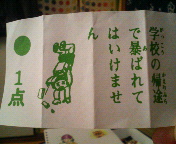 学校の帰途
で暴ばれて
はいけませ
ん
1点